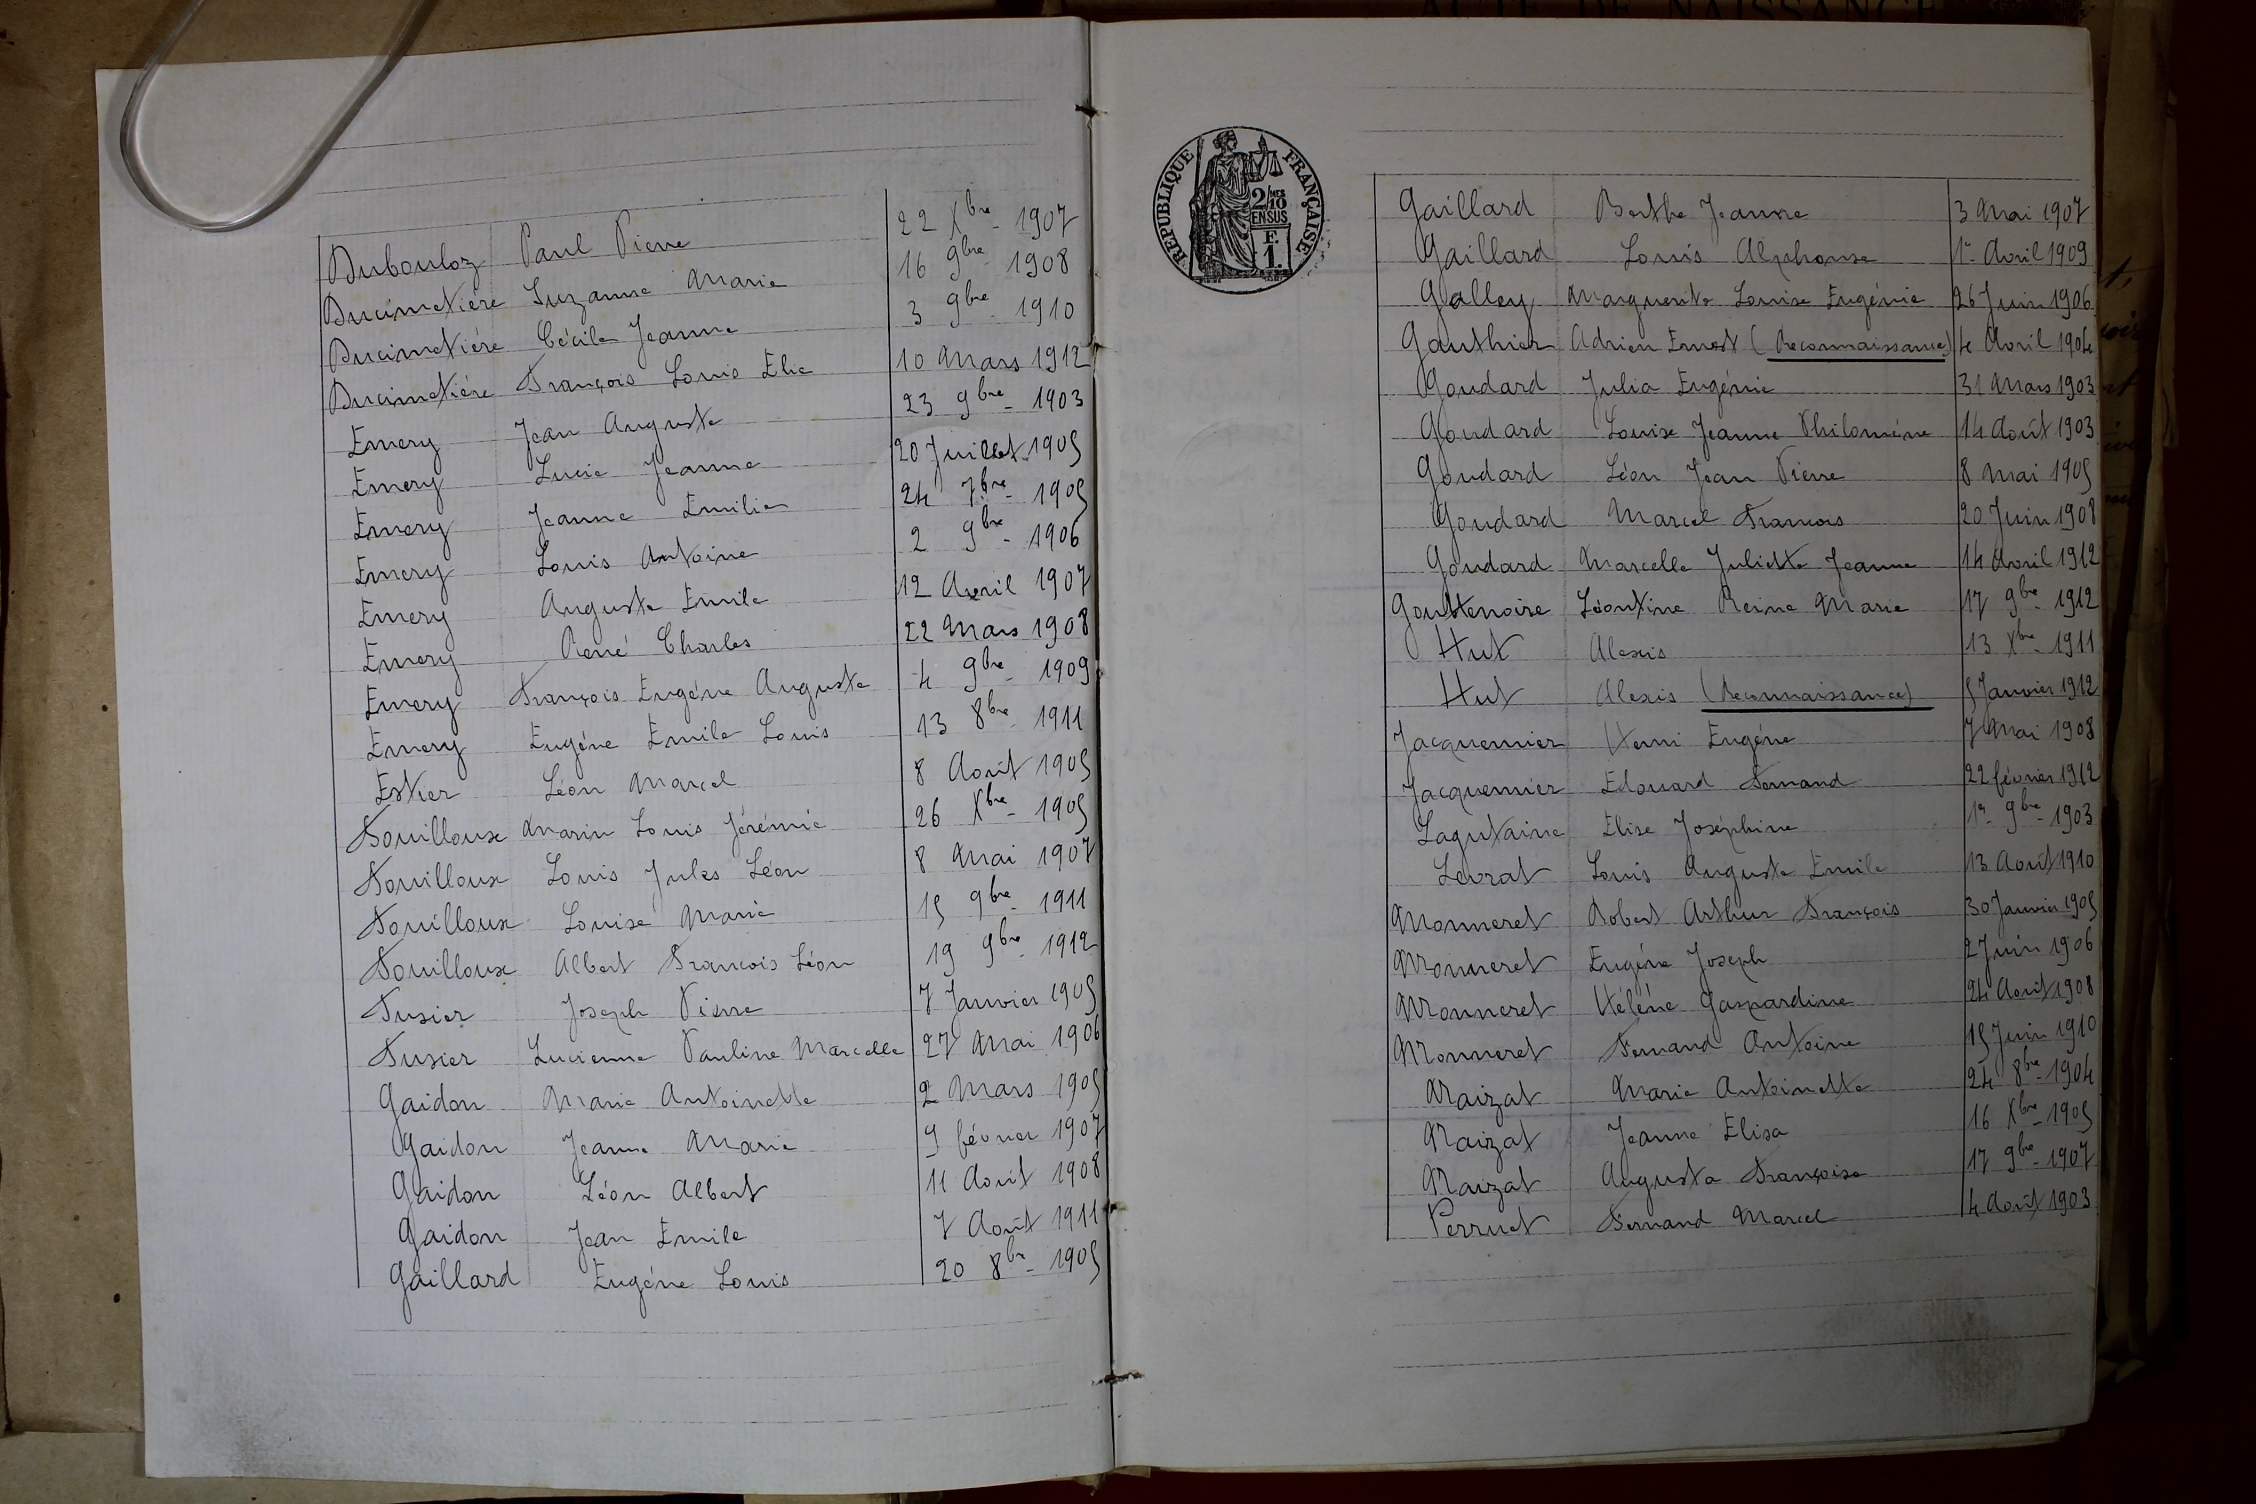 ACTE DE NAISSANCE
Dubouloz Paul Pierre 22 Xbre 1907
Ducimetière Suzanne Marie 16 9bre 1908
Ducimetière Cécile Jeanne 3 9bre 1910
Ducimetière François Louis Elie 10 Mars 1912
Emery Jean Auguste 23 9bre 1903
Emery Lucie Jeanne 20 Juillet 1905
Emery Jeanne Emilie 24 7bre 1905
Emery Louis Antoine 2 9bre 1906
Emery Auguste Emile 12 Avril 1907
Emery René Charles 22 Mars 1908
Emery François Eugène Auguste 4 9bre 1909
Emery Eugène Emile Louis 13 8bre 1911
Estier Léon Marcel 8 Août 1905
Fouilloux Marin Louis Jérémie 26 Xbre 1905
Fouilloux Louis Jules Léon 8 Mai 1907
Fouilloux Louise Marie 15 9bre 1911
Fouilloux Albert François Léon 19 9bre 1912
Fusier Joseph Pierre 7 Janvier 1905
Fusier Lucienne Pauline Marcelle 27 Mai 1906
Gaidon Marie Antoinette 2 Mars 1905
Gaidon Jeanne Marie 9 février 1907
Gaidon Léon Albert 11 Août 1908
Gaidon Jean Emile 7 Août 1911
Gaillard Eugène Louis 20 8bre 1905
RÉPUBLIQUE FRANÇAISE
2/10 MES
EN SUS
F.
1.
Gaillard Berthe Jeanne 3 Mai 1907
Gaillard Louis Alphonse 1er Avril 1909
Galley Marguerite Louise Eugénie 26 Juin 1906
Gauthier Adrien Ernest (Reconnaissance) 4 Avril 1904
Goudard Julia Eugénie 31 Mars 1903
Goudard Louise Jeanne Philomène 14 Août 1903
Goudard Léon Jean Pierre 8 Mai 1905
Goudard Marcel François 20 Juin 1908
Goudard Marcelle Juliette Jeanne 14 Avril 1912
Gouttenoire Léontine Reine Marie 17 9bre 1912
Hut Alexis 13 Xbre 1911
Hut Alexis (Reconnaissance) 5 Janvier 1912
Jacquemier Henri Eugène 7 Mai 1908
Jacquemier Edouard Fernand 22 février 1912
Lagutaine Elise Joséphine 1er 9bre 1903
Levrat Louis Auguste Emile 13 Août 1910
Monneret Robert Arthur François 30 Janvier 1905
Monneret Eugène Joseph 2 Juin 1906
Monneret Hélène Gaspardine 24 Août 1908
Monneret Fernand Antoine 15 Juin 1910
Naizat Marie Antoinette 24 8bre 1904
Naizat Jeanne Elisa 16 Xbre 1905
Naizat Augusta Françoise 17 9bre 1907
Perruet Fernand Marcel 4 Août 1903